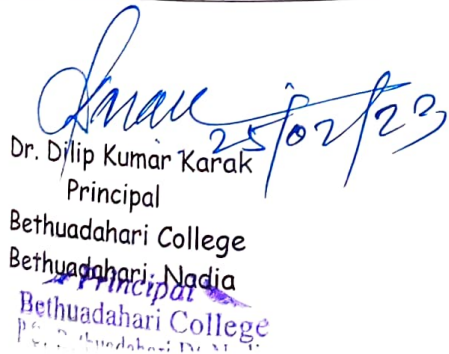 25/02/23
Dr. Dilip Kumar Karak
Principal
Bethuadahari College
Bethuadahari, Nadia
Principal
Bethuadahari College